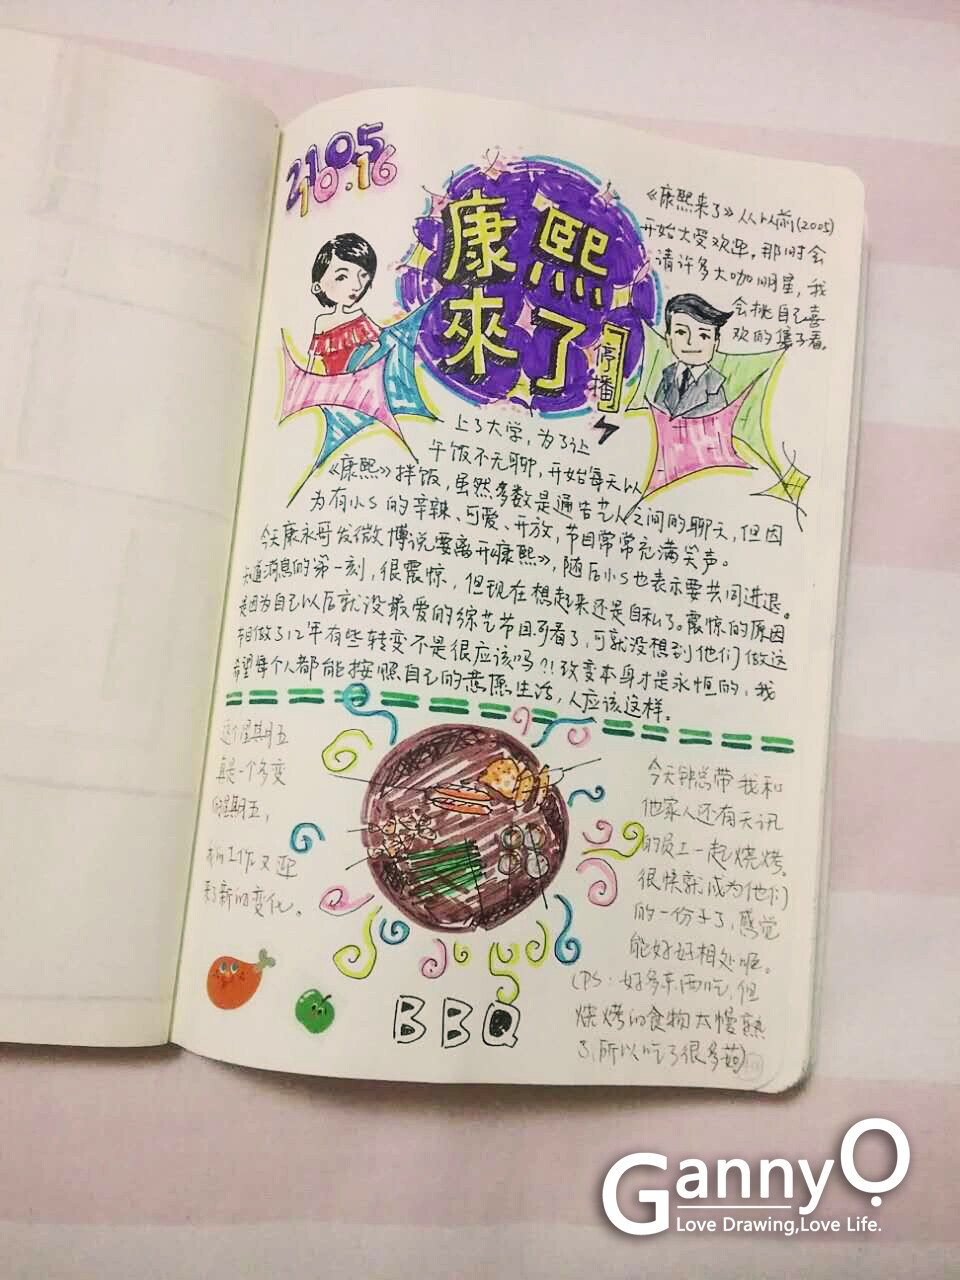 2105
10.16
康熙
來了
停播
《康熙来了》从以前(2005)
开始大受欢迎，那时会
请许多大咖明星，我
会挑自己喜
欢的集子看。
上了大学，为了让
午饭不无聊，开始每天以
《康熙》拌饭，虽然多数是通告艺人之间的聊天，但因
为有小S的辛辣、可爱、开放，节目常常充满笑声。
今天康永哥发微博说要离开《康熙》，随后小S也表示要共同进退。
知道消息的第一刻，很震惊，但现在想起来还是自私了。震惊的原因
是因为自己以后就没最爱的综艺节目可看了，可就没想到他们做这
节目做了12年有些转变不是很应该吗?!改变本身才是永恒的，我
希望每个人都能按照自己的意愿生活，人应该这样。
这个星期五
真是一个多变
的星期五，
我的工作又迎
来了新的变化。
今天钟总带我和
他家人还有天讯
的员工一起烧烤。
很快就成为他们
的一份子了，感觉
能好好相处喔。
(PS：好多东西吃，但
烧烤的食物太慢熟
了，所以吃了很多
BBQ
GannyQ
Love Drawing,Love Life.